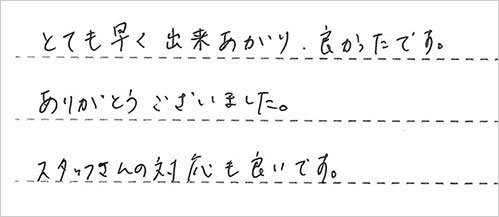 とても早く出来あがり、良かったです。
ありがとうございました。
スタッフさんの対応も良いです。